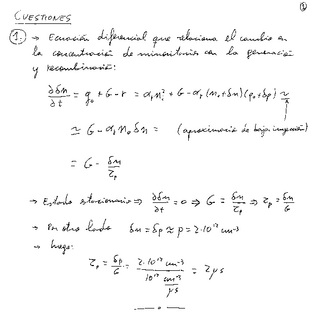 CUESTIONES
1. → Ecuación diferencial que relaciona el cambio en
la concentración de minoritarios con la generación
y recombinación:
∂δn/∂t = g₀ + G - r = αᵣnᵢ² + G - αᵣ(n₀+δn)(p₀+δp) ≃
≃ G - αᵣ n₀ δn = (aproximación de baja inyección)
= G - δn/τₚ
→ Estado estacionario ⇒ ∂δn/∂t = 0 ⇒ G = δn/τₚ ⇒ τₚ = δn/G
→ Por otro lado δn = δp ≈ p = 2·10¹³ cm⁻³
→ luego:
τₚ = δp/G = 2·10¹³ cm⁻³ / 10¹³ cm⁻³/μs = 2μs